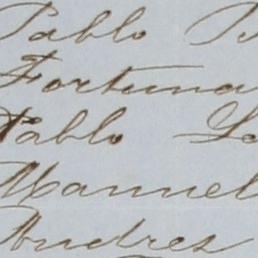 Pablo B
Fortuna
Pablo Lo
Manuel
Andres